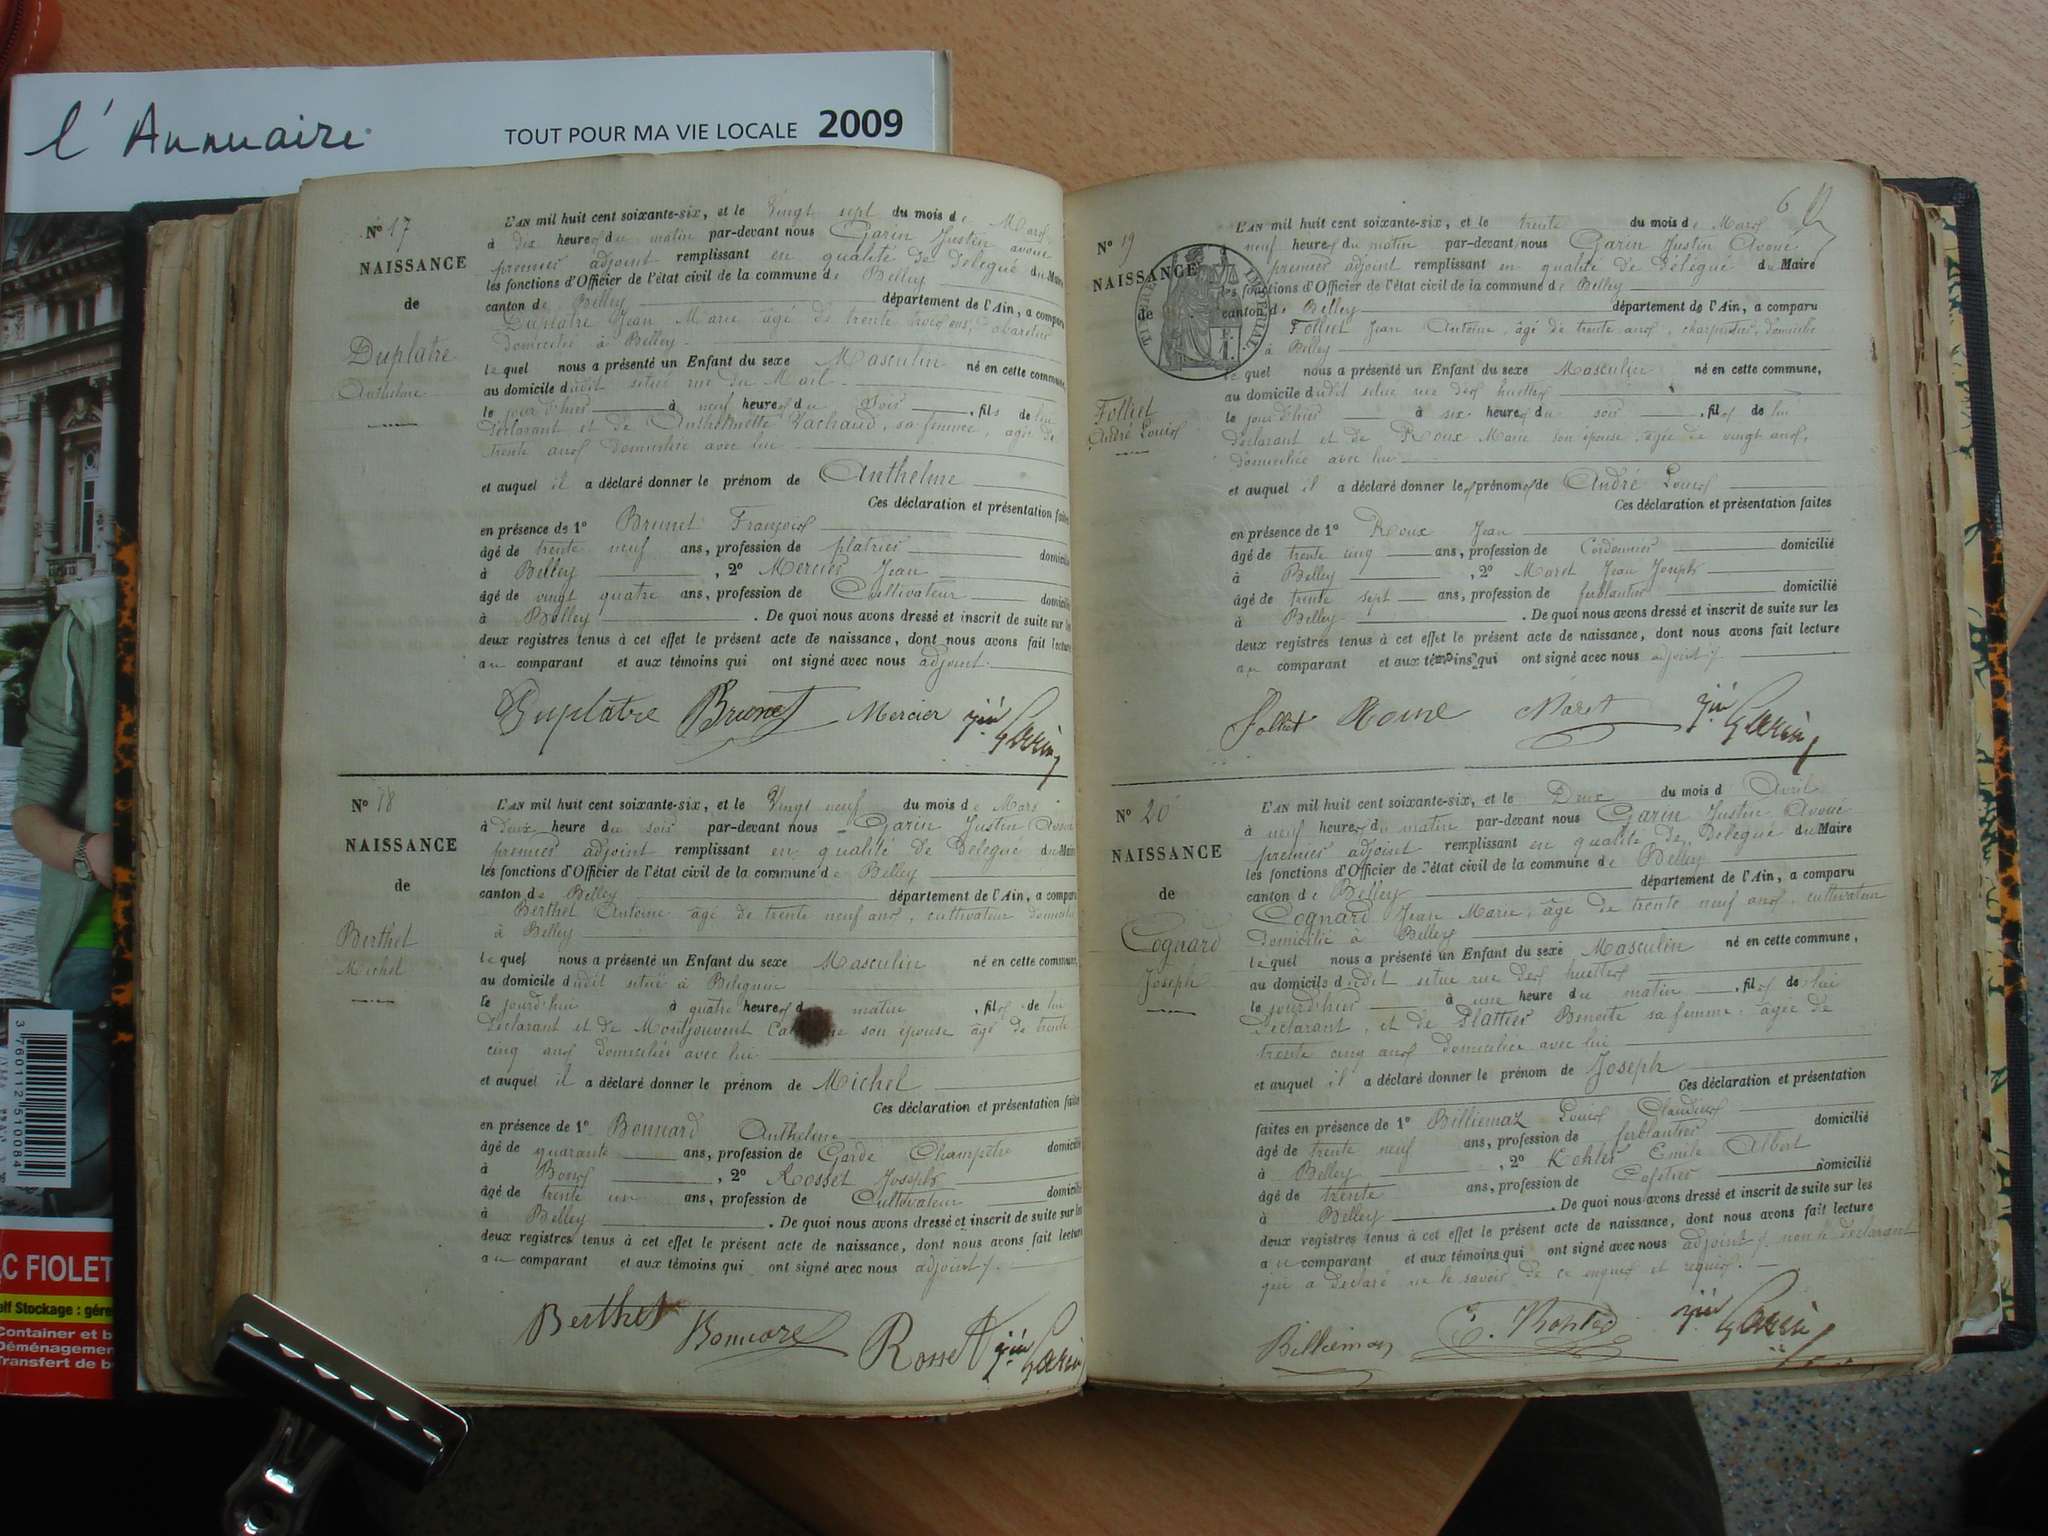 l'Annuaire
TOUT POUR MA VIE LOCALE 2009
N° 17
NAISSANCE
de
Duplatre
Anthelme
L'AN mil huit cent soixante-six, et le Vingt sept du mois de Mars
à dix heures du matin par-devant nous Garin Justin avoué
premier adjoint remplissant en qualité de délégué du Maire
les fonctions d'Officier de l'état civil de la commune de Belley
canton de Belley département de l'Ain, a comparu
Duplatre Jean Marie âgé de trente trois ans, cabaretier
domicilié à Belley
lequel nous a présenté un Enfant du sexe Masculin né en cette commune,
au domicile dudit situé rue du Mail
le jour d'hier à neuf heures du soir, fils de lui
déclarant et de Anthelmette Vachaud, sa femme, âgée de
trente ans domiciliée avec lui
et auquel il a déclaré donner le prénom de Anthelme
Ces déclaration et présentation faites
en présence de 1° Brunet François
âgé de trente neuf ans, profession de platrier domicilié
à Belley, 2° Mercier Jean
âgé de vingt quatre ans, profession de Cultivateur domicilié
à Belley. De quoi nous avons dressé et inscrit de suite sur les
deux registres tenus à cet effet le présent acte de naissance, dont nous avons fait lecture
au comparant et aux témoins qui ont signé avec nous adjoint.
Duplatre Brunet Mercier Jin Garin
N° 18
NAISSANCE
de
Berthet
Michel
L'AN mil huit cent soixante-six, et le Vingt neuf du mois de Mars
à deux heure du soir par-devant nous Garin Justin Avoué
premier adjoint remplissant en qualité de Délégué du Maire
les fonctions d'Officier de l'état civil de la commune de Belley
canton de Belley département de l'Ain, a comparu
Berthet Antoine âgé de trente neuf ans, cultivateur domicilié
à Belley
lequel nous a présenté un Enfant du sexe Masculin né en cette commune,
au domicile dudit situé à
le jourd'hui à quatre heures du matin, fils de lui
déclarant et de Montjouvent son épouse âgé de trente
cinq ans domiciliée avec lui
et auquel il a déclaré donner le prénom de Michel
Ces déclaration et présentation faites
en présence de 1° Bonnard Anthelme
âgé de quarante ans, profession de Garde Champêtre domicilié
à Bons, 2° Rosset Joseph
âgé de trente un ans, profession de Cultivateur domicilié
à Belley. De quoi nous avons dressé et inscrit de suite sur les
deux registres tenus à cet effet le présent acte de naissance, dont nous avons fait lecture
au comparant et aux témoins qui ont signé avec nous adjoint.
Berthet Bonnard Rosset Jin Garin
6
N° 19
NAISSANCE
de
Folliet
André Louis
TIMBRE IMPERIAL
L'AN mil huit cent soixante-six, et le trente du mois de Mars
neuf heures du matin par-devant nous Garin Justin Avoué
premier adjoint remplissant en qualité de délégué du Maire
les fonctions d'Officier de l'état civil de la commune de Belley
canton de Belley département de l'Ain, a comparu
Folliet Jean Antoine, âgé de trente ans, charpentier, domicilié
à Belley
lequel nous a présenté un Enfant du sexe Masculin né en cette commune,
au domicile dudit situé rue des huettes
le jour d'hier à six heures du soir, fils de lui
déclarant et de Roux Marie son épouse âgée de vingt ans,
domiciliée avec lui
et auquel il a déclaré donner les prénoms de André Louis
Ces déclaration et présentation faites
en présence de 1° Roux Jean
âgé de trente cinq ans, profession de Cordonnier domicilié
à Belley, 2° Maret Jean Joseph
âgé de trente sept ans, profession de ferblantier domicilié
à Belley. De quoi nous avons dressé et inscrit de suite sur les
deux registres tenus à cet effet le présent acte de naissance, dont nous avons fait lecture
au comparant et aux témoins qui ont signé avec nous adjoint.
Folliet Maret Jin Garin
N° 20
NAISSANCE
de
Cognard
Joseph
L'AN mil huit cent soixante-six, et le Deux du mois d Avril
à neuf heures du matin par-devant nous Garin Justin Avoué
premier adjoint remplissant en qualité de Délégué du Maire
les fonctions d'Officier de l'état civil de la commune de Belley
canton de Belley département de l'Ain, a comparu
Cognard Jean Marie, âgé de trente neuf ans, cultivateur
domicilié à Belley
lequel nous a présenté un Enfant du sexe Masculin né en cette commune,
au domicile dudit situé rue des huettes
le jourd'hier à une heure du matin, fils de lui
déclarant, et de Plattier Benoite sa femme, âgée de
trente cinq ans domiciliée avec lui
et auquel il a déclaré donner le prénom de Joseph
Ces déclaration et présentation
faites en présence de 1° Billiemaz Louis Claudius
âgé de trente neuf ans, profession de ferblantier domicilié
à Belley, 2° Kohler Emile Albert
âgé de trente ans, profession de Cafetier domicilié
à Belley. De quoi nous avons dressé et inscrit de suite sur les
deux registres tenus à cet effet le présent acte de naissance, dont nous avons fait lecture
au comparant et aux témoins qui ont signé avec nous adjoint, non le déclarant
qui a déclaré ne le savoir de ce enquis et requis.
Billiemaz E. Kohler Jin Garin
3 760112 510084
C FIOLET
elf Stockage : gére
Container et b
Déménagemen
Transfert de b